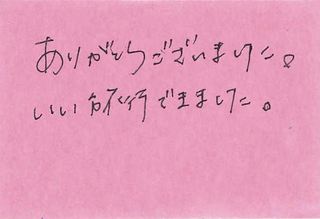 ありがとうございました。
いい旅行できました。